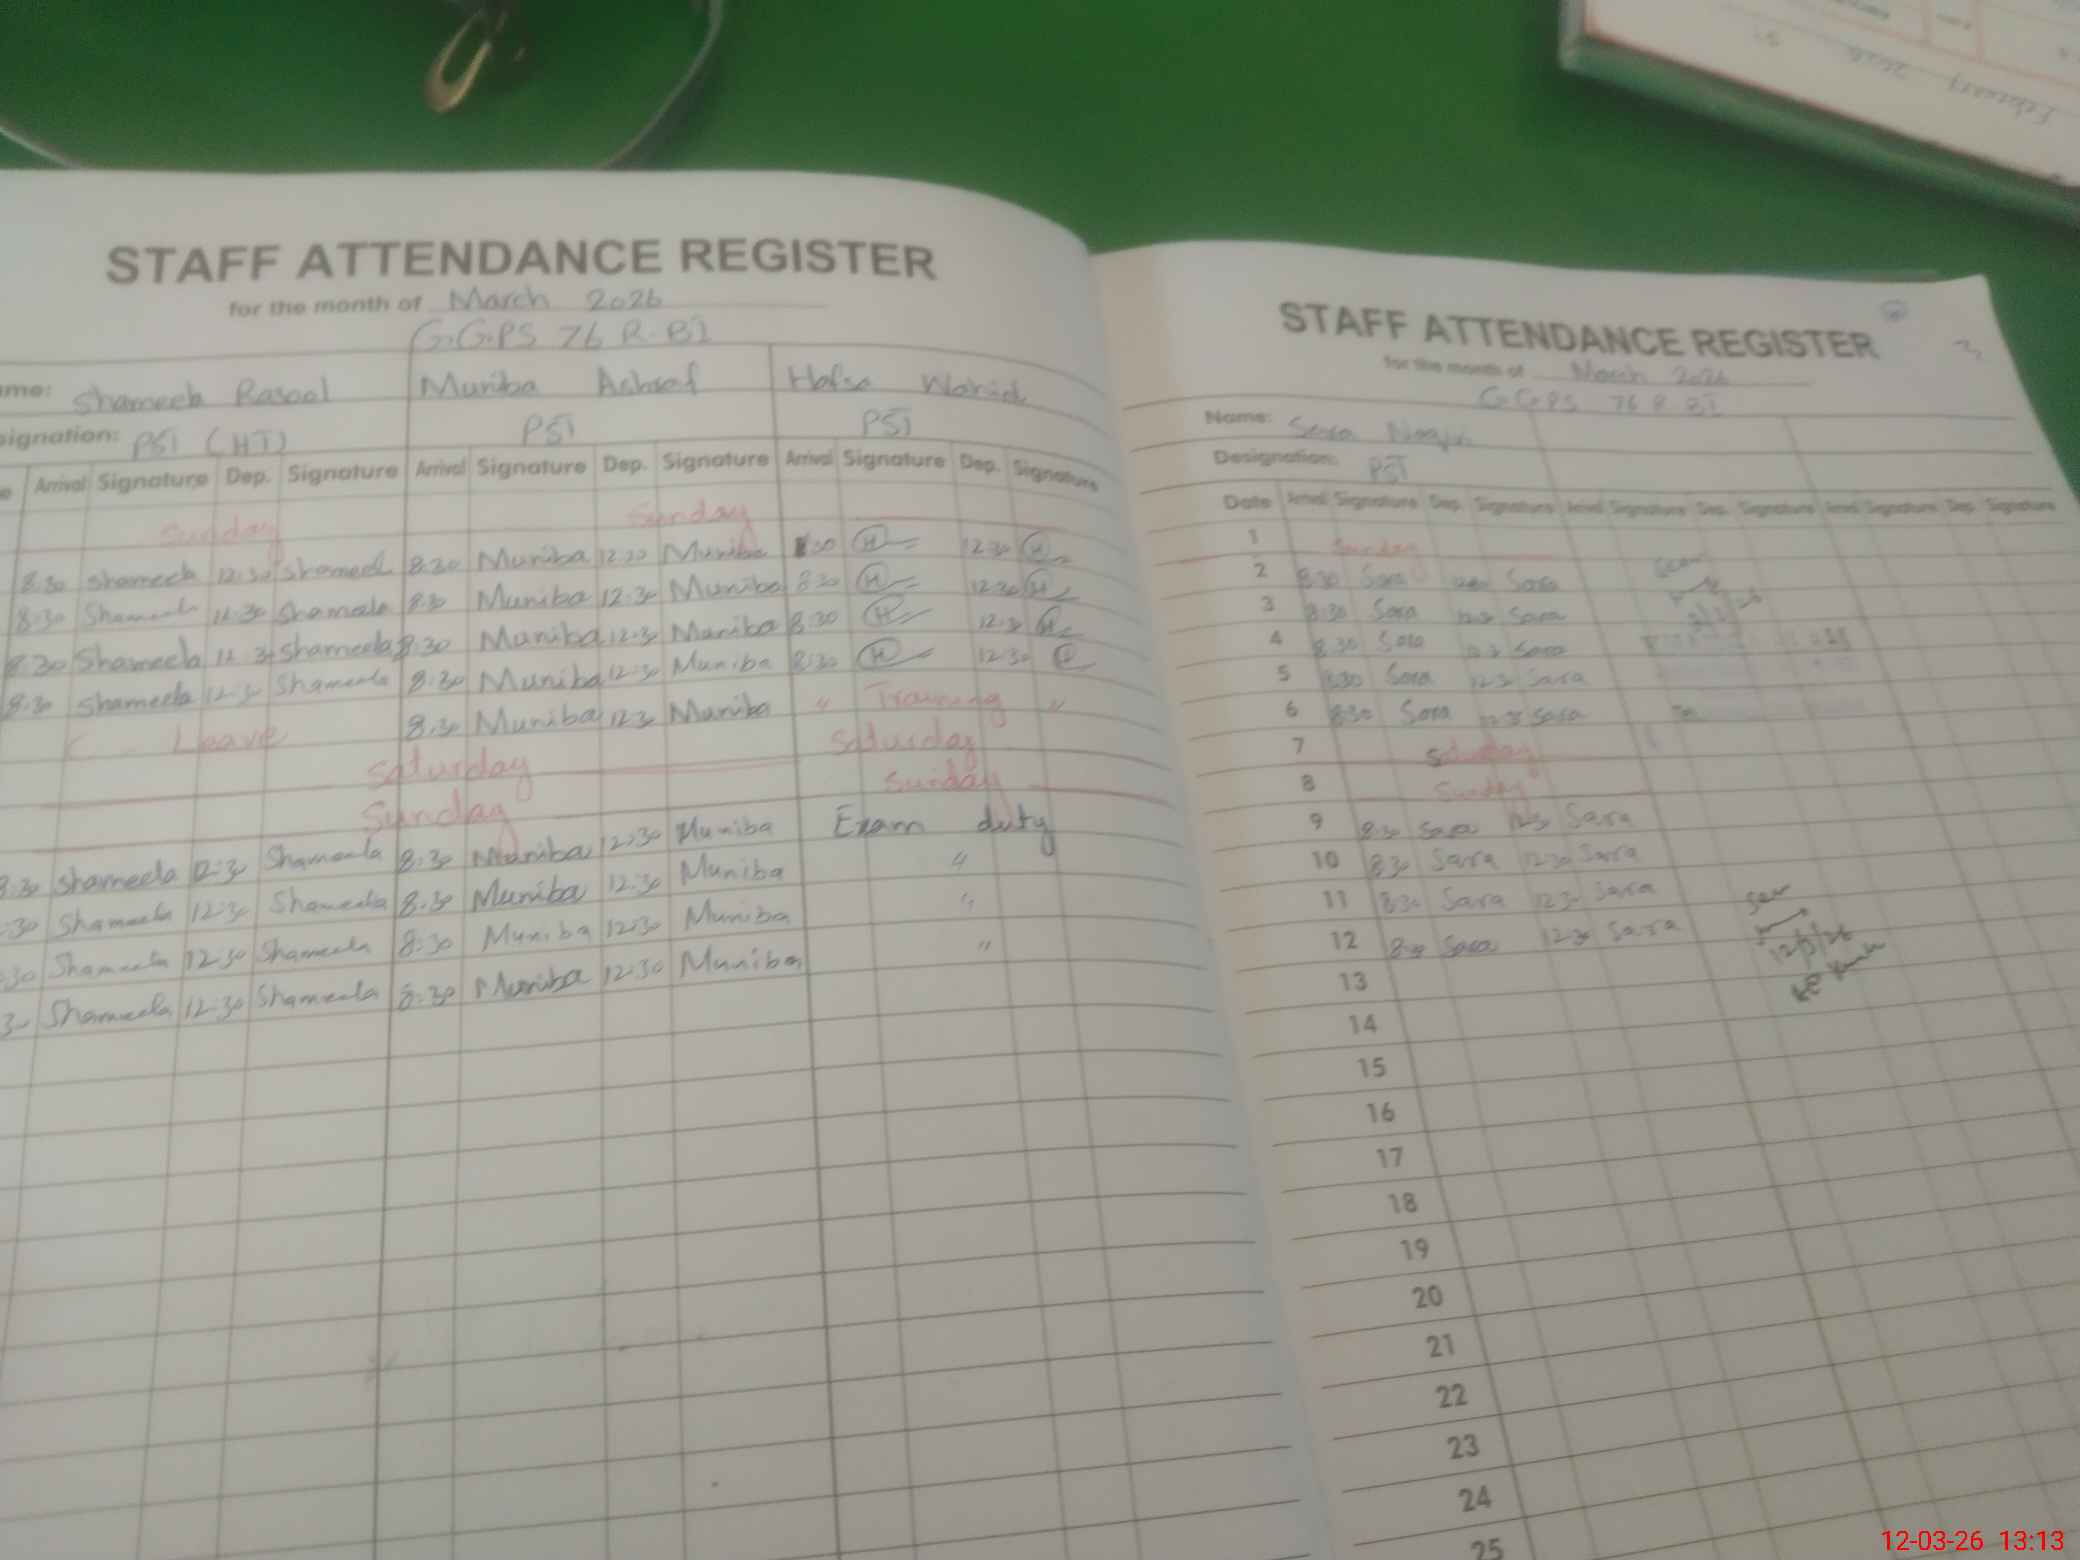 STAFF ATTENDANCE REGISTER
for the month of March 2026
G.G.PS 76 R.BI
ame: Shameela Rasool Muniba Ashraf Hafsa Wahid
signation: PST (HT) PST PST
Arrival Signature Dep. Signature Arrival Signature Dep. Signature Arrival Signature Dep. Signature
Sunday Sunday
8:30 Shameela 12:30 Shameela 8:30 Muniba 12:30 Muniba 8:30 H 12:30 H
8:30 Shameela 12:30 Shameela 8:30 Muniba 12:30 Muniba 8:30 H 12:30 H
8:30 Shameela 12:30 Shameela 8:30 Muniba 12:30 Muniba 8:30 H 12:30 H
8:30 Shameela 12:30 Shameela 8:30 Muniba 12:30 Muniba 8:30 H 12:30
Leave 8:30 Muniba 12:30 Muniba " Training "
Saturday Saturday
Sunday Sunday
8:30 Shameela 12:30 Shameela 8:30 Muniba 12:30 Muniba Exam duty
:30 Shameela 12:30 Shameela 8:30 Muniba 12:30 Muniba "
:30 Shameela 12:30 Shameela 8:30 Muniba 12:30 Muniba "
30 Shameela 12:30 Shameela 8:30 Muniba 12:30 Muniba "
STAFF ATTENDANCE REGISTER
for the month of March 2026
G.G.PS 76 R.BI
Name: Sara
Designation: PST
Date Arrival Signature Dep. Signature Arrival Signature Dep. Signature Arrival Signature Dep. Signature
1 Sunday
2 8:30 Sara 12:30 Sara
3 8:30 Sara 12:30 Sara
4 8:30 Sara 12:30 Sara
5 8:30 Sara 12:30 Sara
6 8:30 Sara 12:30 Sara
7 Saturday
8 Sunday
9 8:30 Sara 12:30 Sara
10 8:30 Sara 12:30 Sara
11 8:30 Sara 12:30 Sara
12 8:30 Sara 12:30 Sara
Seen
12/3/26
13
14
15
16
17
18
19
20
21
22
23
24
25
February 2026
12-03-26 13:13